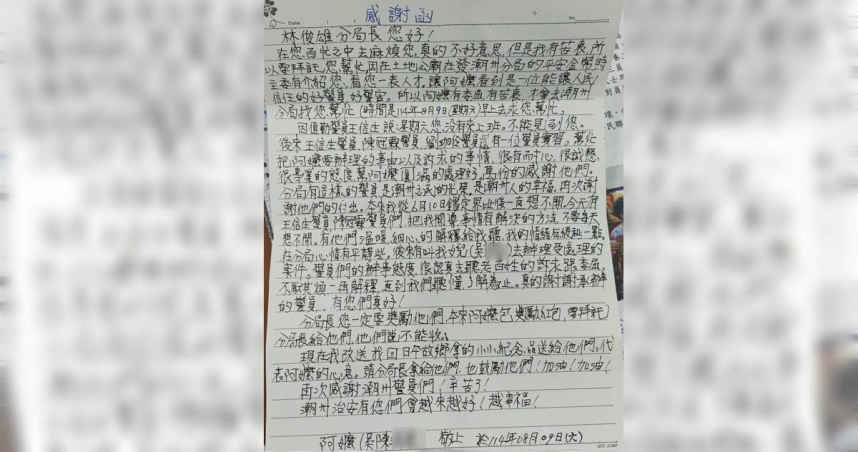 感謝函
Date / / No
林俊雄分局長您好！
在您百忙之中去麻煩您，真的不好意思，但是我有苦衷，所
以要拜託您幫忙，因在土地公廟在發潮州分局的平安金幣時
主委有介紹您，看您一表人才，讓阿嬤看到是一位能讓人民
信任的好警員好警官。所以阿嬤有委屈有苦衷，才會去潮州
分局找您幫忙（時間是114年8月9日（星期六）早上去求您幫忙，
因值勤警員王信生說：星期六您沒有來上班。不能見到您。
後來王信生警員、陳冠霖警員、劉珈伶警員這有一位警員實習。幫忙
把阿嬤要辦理的事由以及訴求的事情，很有耐心，很誠懇，
很專業的態度幫阿嬤圓滿的處理好，萬份的感謝他們。
分局有這樣的警員是潮州公民的光榮，是潮州人的幸福，再次謝
謝他們的付出。本來我從6月10日鑑定界址後一直想不開，今天有
王信生警員、陳冠霖警員們，把我開導，事情有解決的方法，不要每天
想不開。有他們溫暖，細心的解釋給我聽，我的情緒有緩和一點。
在分局心情有平靜些。後來有叫我女兒（吳 ）去辦理受處理的
案件。警員們的辦事態度，很認真去聽老百姓的訴求跟委屈，
不厭其煩一再解釋，直到我們聽懂了解為止。真的謝謝承辦
的警員，有您們真好！
分局長您一定要獎勵他們，本來阿嬤包獎勵紅包，要拜託
分局長給他們，他們說不能收。
現在我改送我回日本故鄉拿的小小紀念品送給他們。代
表阿嬤的心意。請分局長拿給他們，也鼓勵他們！加油！加油！
再次感謝潮州警員們！辛苦了！
潮州治安有您們會越來越好！越幸福！
阿嬤（吳陳 敬上 於114年08月09日（六）